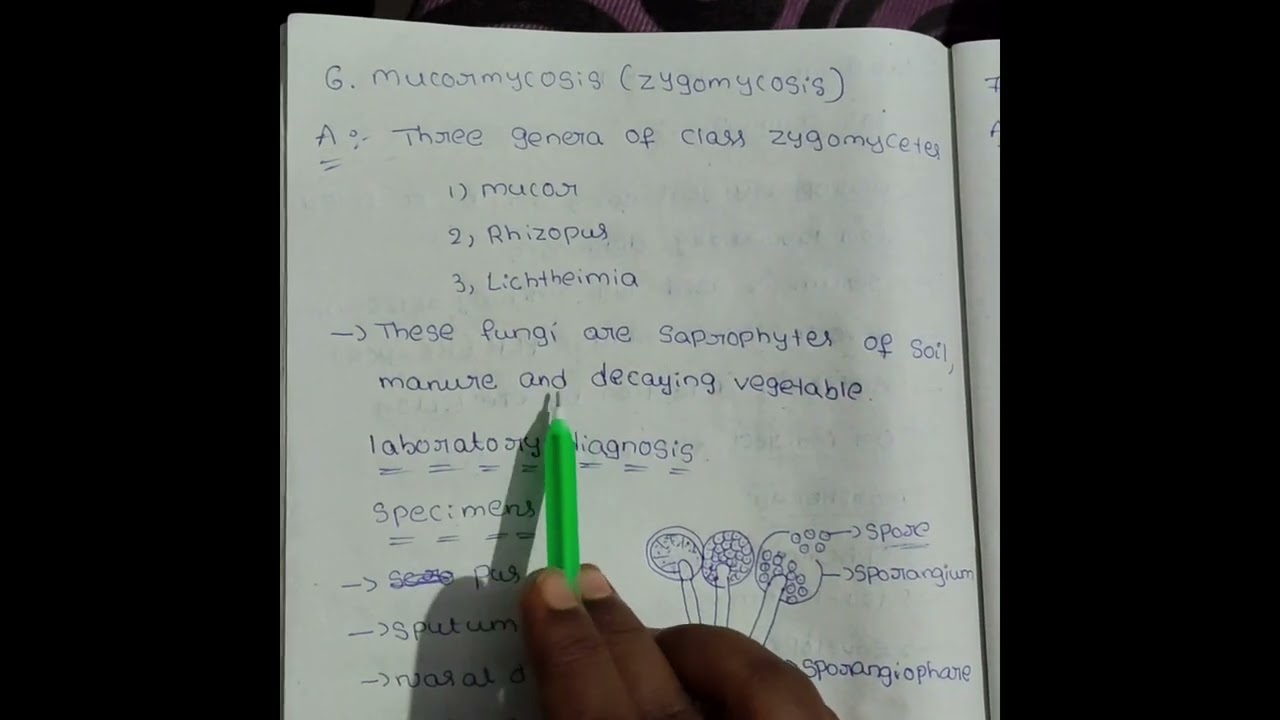 6. Mucormycosis (Zygomycosis)
A:- Three genera of class zygomycetes
1) Mucor
2, Rhizopus
3, Lichtheimia
→ These fungi are saprophytes of soil,
manure and decaying vegetable.
laboratory diagnosis
specimens
→ pus
→ sputum
→ nasal d
→ spore
→ sporangium
sporangiophare